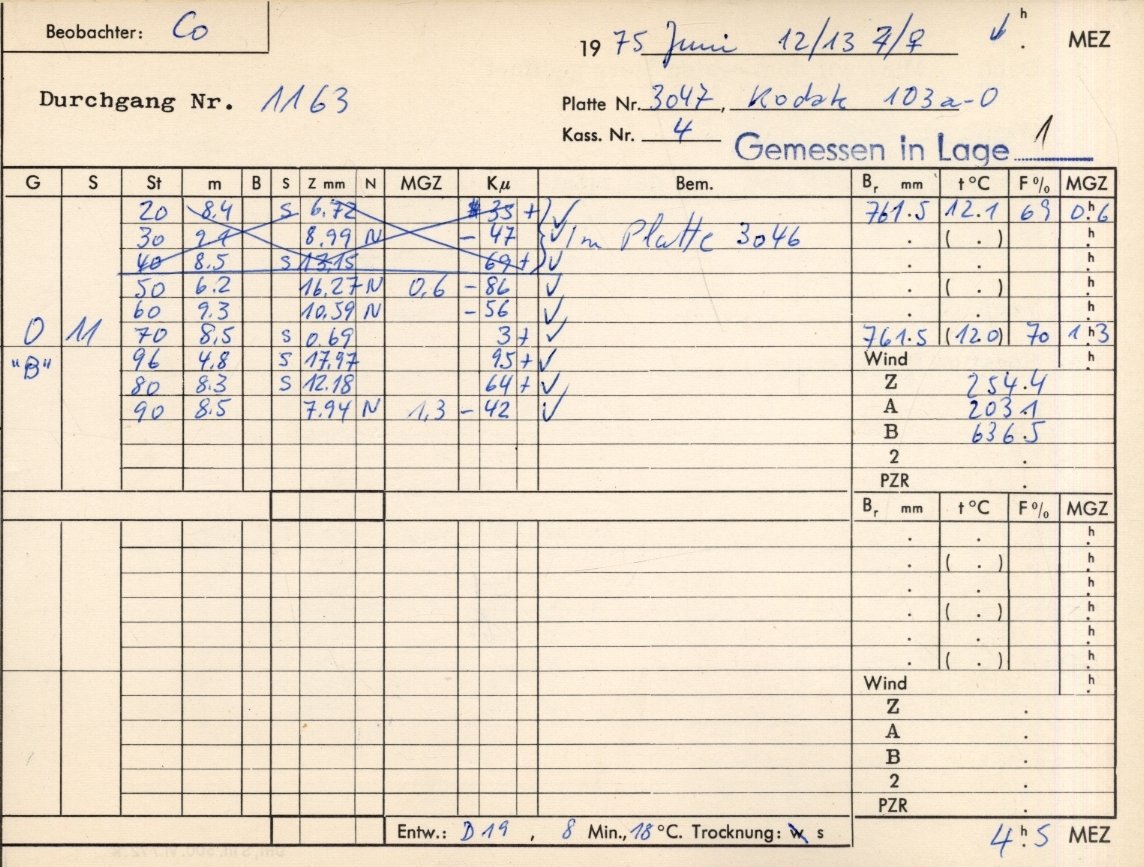 Beobachter: Co
1975 Juni 12/13 4/♀ h . MEZ
Durchgang Nr. 1163
Platte Nr. 3047, Kodak 103a-O
Kass. Nr. 4
Gemessen in Lage 1
G S St m B S Z mm N MGZ Kμ Bem. Br mm t °C F % MGZ
20 8.4 S 6.72 35 + ✓ 761.5 12.1 69 0h.6
30 9.1 8.99 N - 47 ✓ Im Platte 3046 . ( . )
40 8.5 S 13.15 69 + ✓ . . h
50 6.2 16.27 N 0,6 - 86 ✓ . ( . ) h
60 9.3 10.59 N - 56 ✓ . . h
0 11 70 8.5 S 0.69 3 + ✓ 761.5 (12.0) 70 1h3
"B" 96 4.8 S 17.97 95 + ✓ Wind h
80 8.3 S 12.18 64 + ✓ Z 254.4
90 8.5 7.94 N 1,3 - 42 ✓ A 203 1
B 636.5
2 .
PZR .
Br mm t °C F % MGZ
. . h
. ( . ) h
. . h
. ( . ) h
. . h
. ( . ) h
Wind h
Z .
A .
B .
2 .
PZR .
Entw.: D 19 , 8 Min., 18 °C. Trocknung: w s
4h.5 MEZ